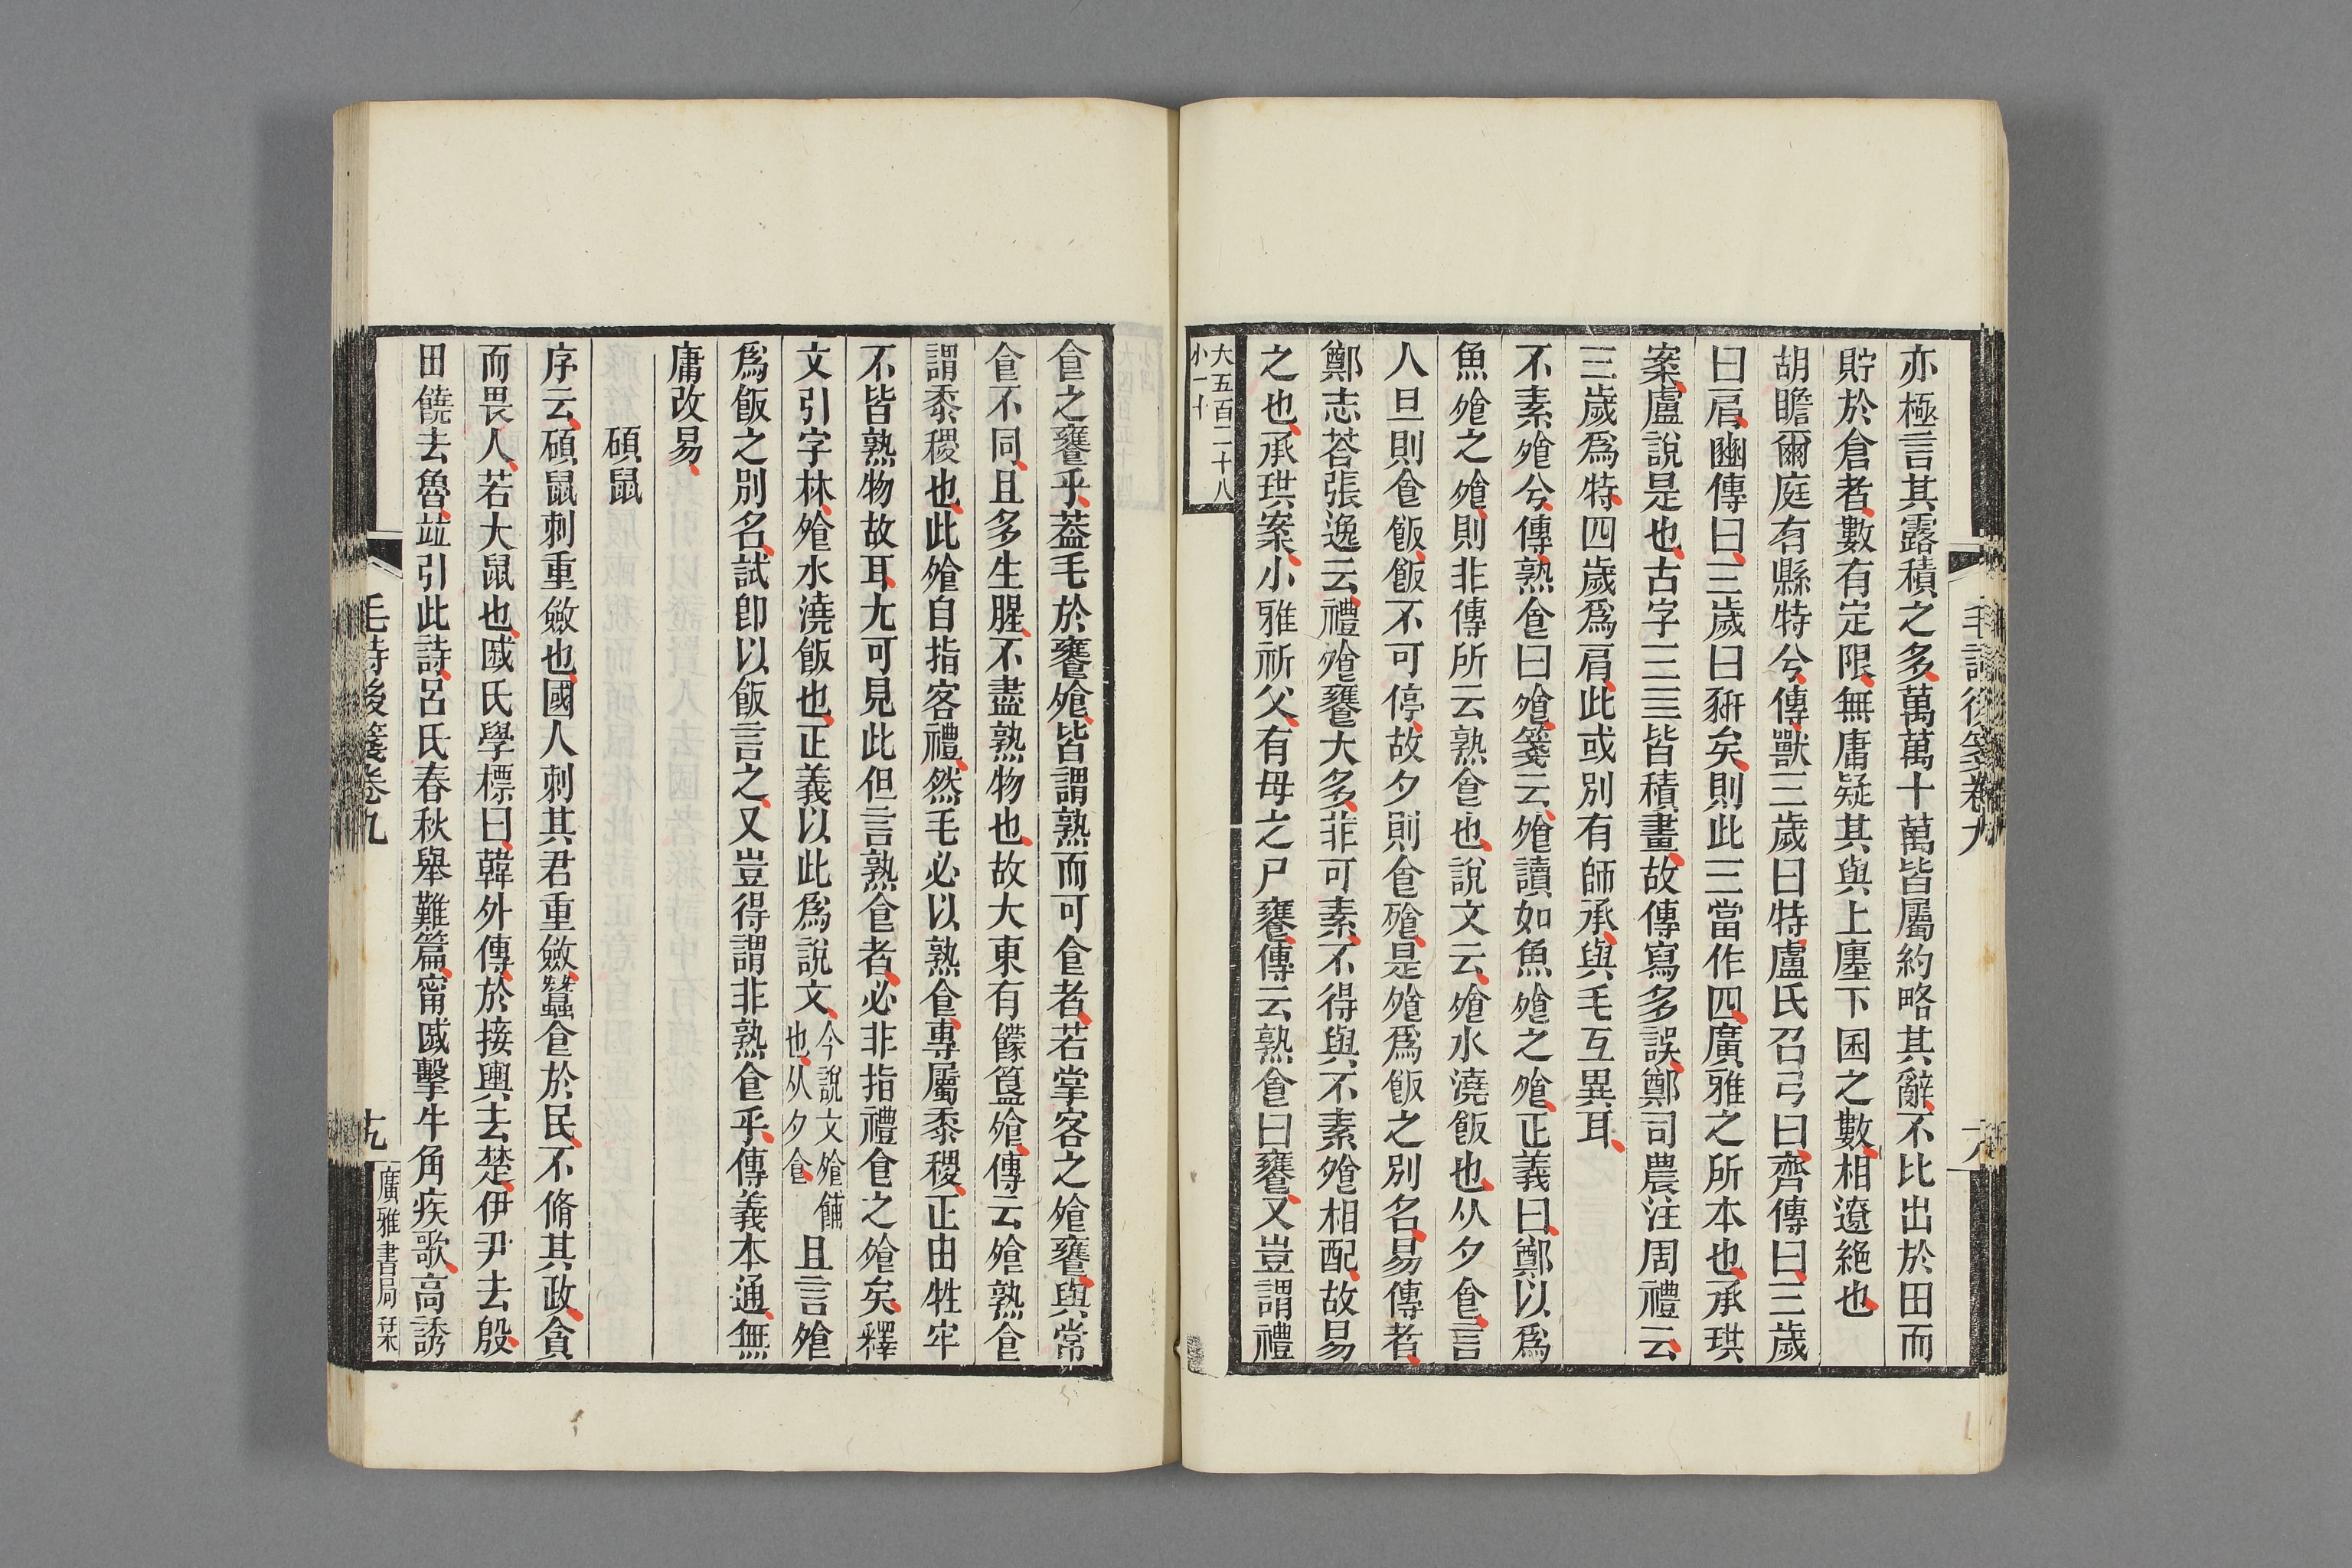 亦極言其露積之多萬萬十萬皆屬約略其辭不比出於田而
貯於倉者數有定限無庸疑其與上廛下囷之數相遼絕也
胡瞻爾庭有縣特兮傳獸三歲曰特盧氏召弓曰齊傳曰三歲
曰肩豳傳曰三歲曰豜矣則此三當作四廣雅之所本也承珙
案盧說是也古字三亖皆積畫故傳寫多誤鄭司農注周禮云
三歲爲特四歲爲肩此或別有師承與毛互異耳
不素飧兮傳熟食曰飧箋云飧讀如魚飧之飧正義曰鄭以爲
魚飧之飧則非傳所云熟食也說文云飧水澆飯也从夕食言
人旦則食飯飯不可停故夕則食飧是飧爲飯之別名易傳者
鄭志荅張逸云禮飧饔大多非可素不得與不素飧相配故易
之也承珙案小雅祈父有母之尸饔傳云熟食曰饔又豈謂禮
大五百二十八
小一十
毛詩後箋卷九
十八
食之饔乎葢毛於饔飧皆謂熟而可食者若掌客之飧饔與常
食不同且多生腥不盡熟物也故大東有饛簋飧傳云飧熟食
謂黍稷也此飧自指客禮然毛必以熟食專屬黍稷正由牲牢
不皆熟物故耳尢可見此但言熟食者必非指禮食之飧矣釋
文引字林飧水澆飯也正義以此爲說文今說文飧餔也从夕食且言飧
爲飯之別名試卽以飯言之又豈得謂非熟食乎傳義本通無
庸改易
碩鼠
序云碩鼠刺重斂也國人刺其君重斂蠶食於民不脩其政貪
而畏人若大鼠也戚氏學標曰韓外傳於接輿去楚伊尹去殷
田饒去魯竝引此詩呂氏春秋舉難篇甯戚擊牛角疾歌高誘
毛詩後箋卷九
十九
廣雅書局栞